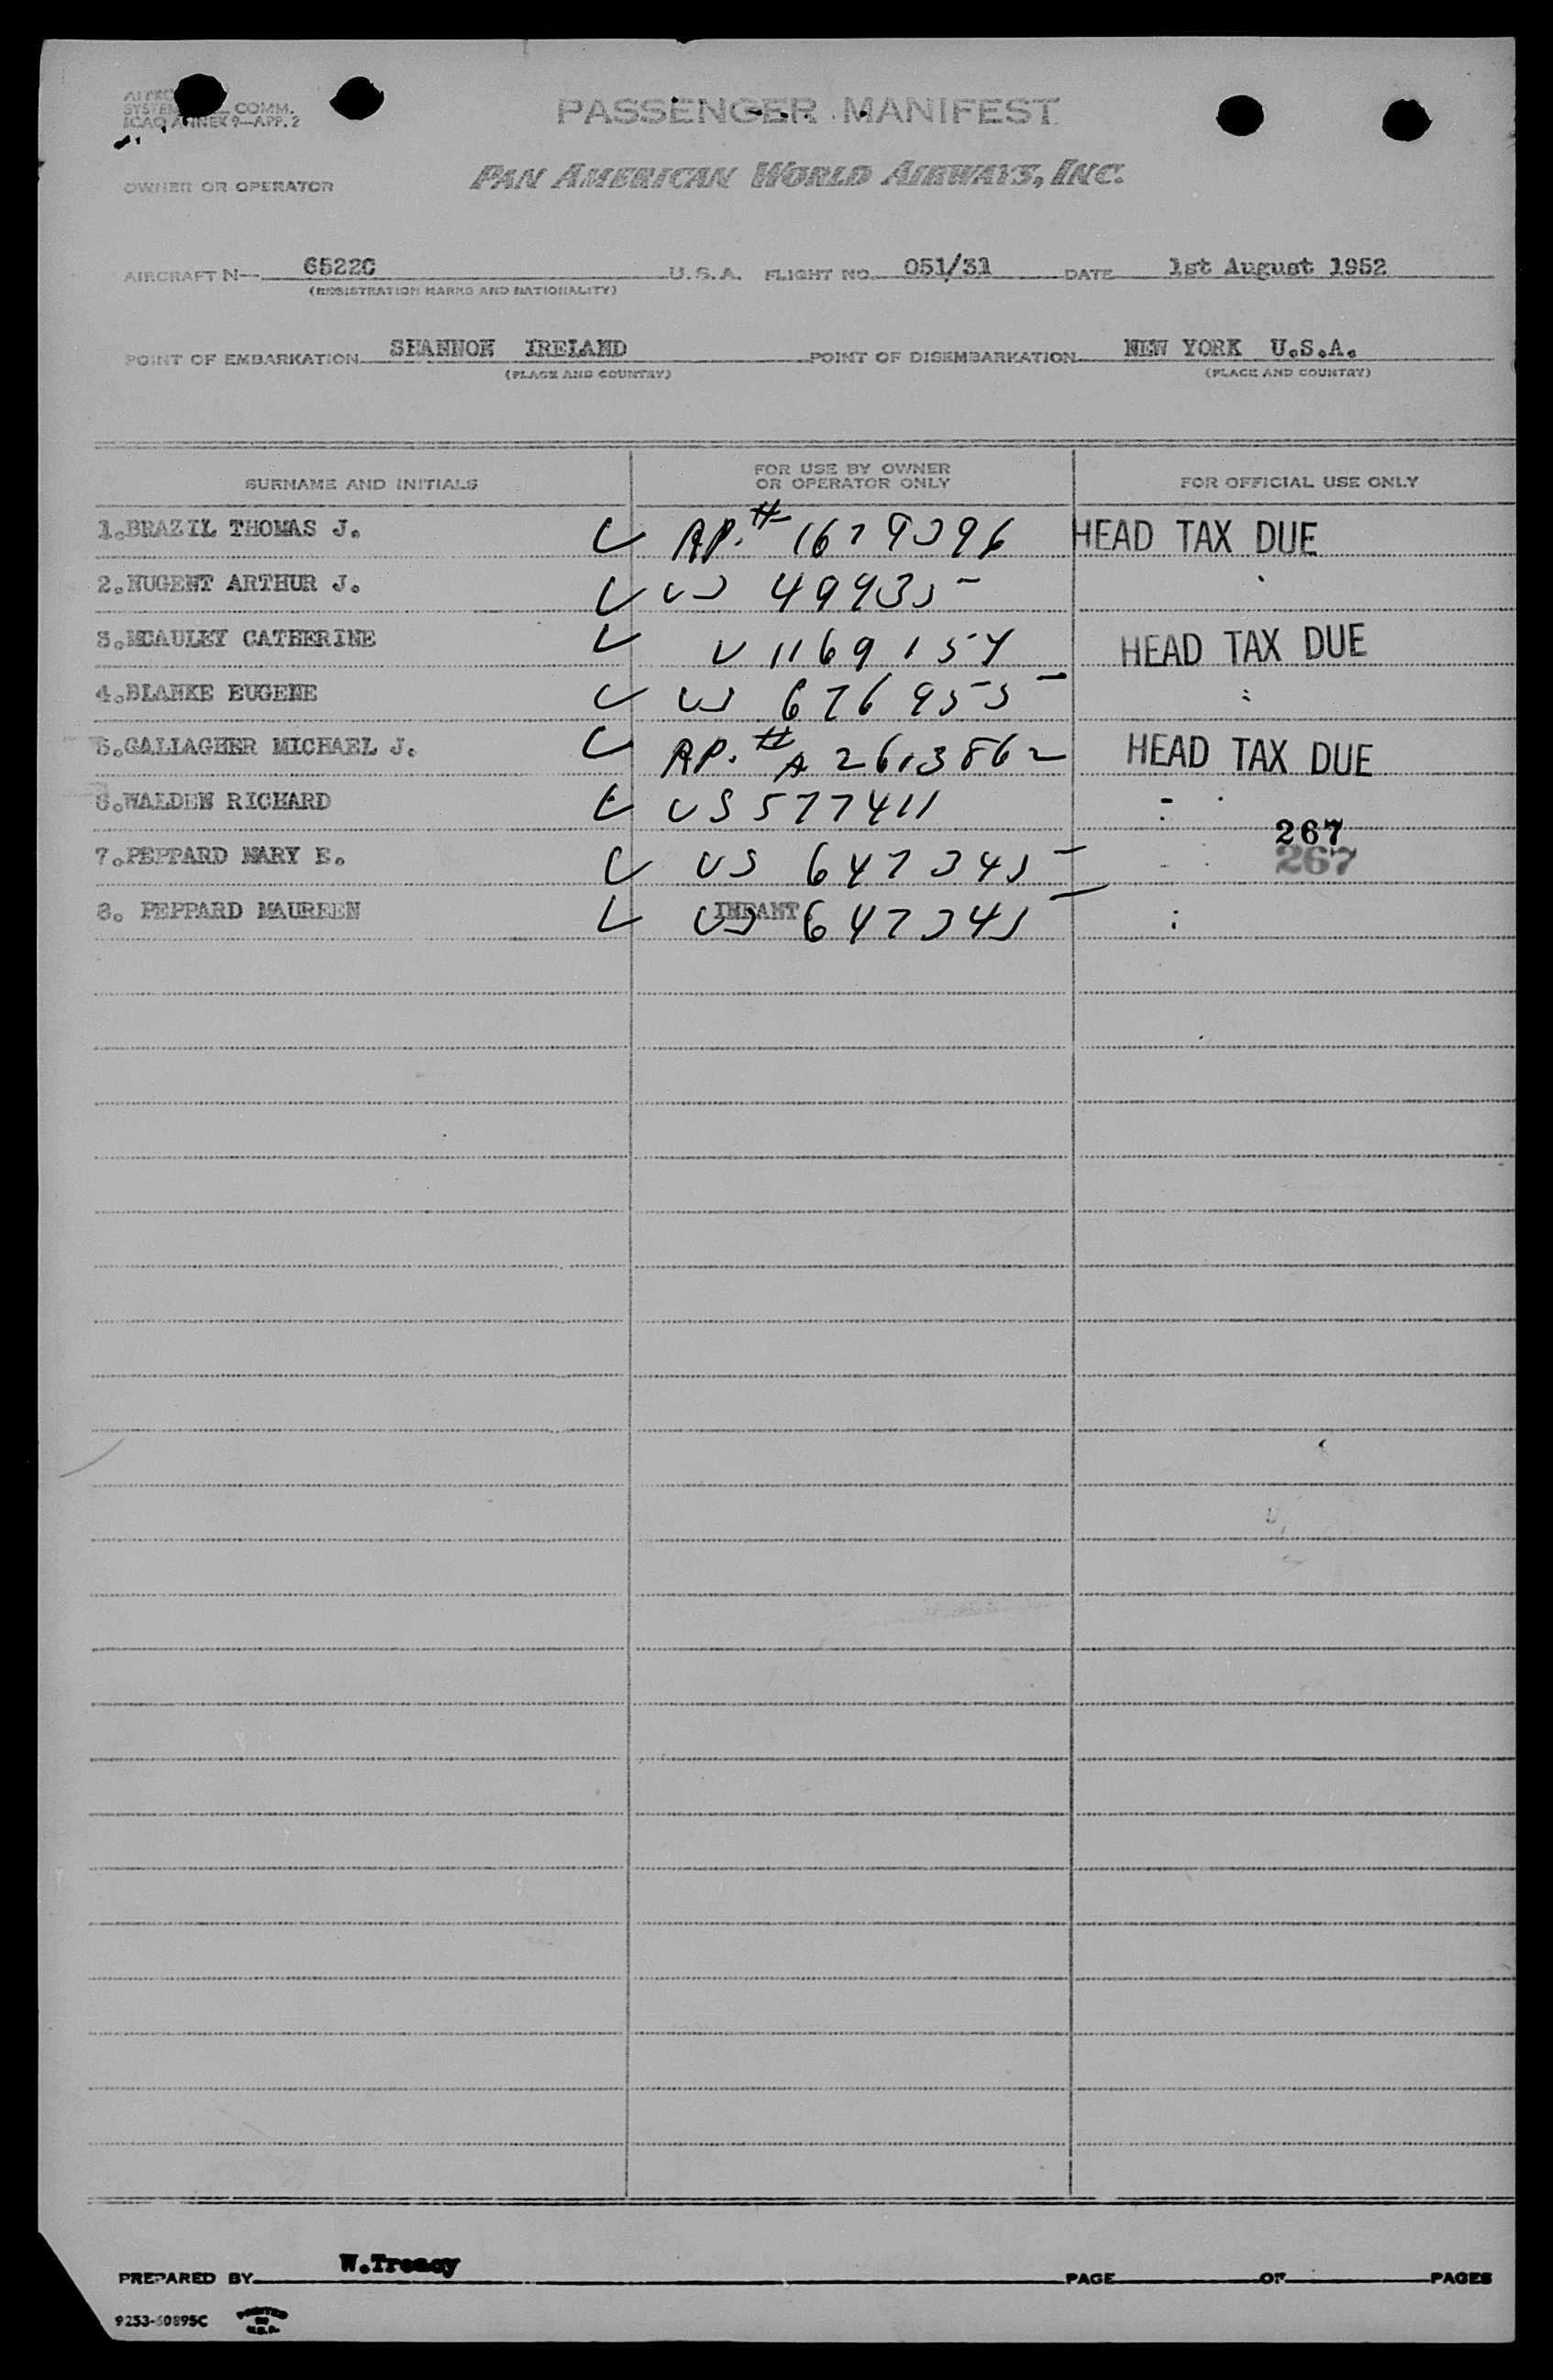 COMM.
ICAO ANNEX 9—APP. 2
PASSENGER MANIFEST
OWNER OR OPERATOR PAN AMERICAN WORLD AIRWAYS, INC.
AIRCRAFT N— 6522C U.S.A. FLIGHT NO. 051/31 DATE 1st August 1952
(REGISTRATION MARKS AND NATIONALITY)
POINT OF EMBARKATION SHANNON IRELAND POINT OF DISEMBARKATION NEW YORK U.S.A.
(PLACE AND COUNTRY) (PLACE AND COUNTRY)
SURNAME AND INITIALS FOR USE BY OWNER OR OPERATOR ONLY FOR OFFICIAL USE ONLY
1.BRAZIL THOMAS J. AP.# 1679396 HEAD TAX DUE
2.NUGENT ARTHUR J. US 499355
3.MCAULEY CATHERINE V 1169154 HEAD TAX DUE
4.BLANKE EUGENE US 676955
5.GALLAGHER MICHAEL J. AP.# A 2613862 HEAD TAX DUE
6.WALDEN RICHARD US 577411
267
7.PEPPARD MARY E. US 647345 267
8. PEPPARD MAUREEN INFANT US 647345
PREPARED BY W.Treacy PAGE OF PAGES
PRINTED IN U.S.A.